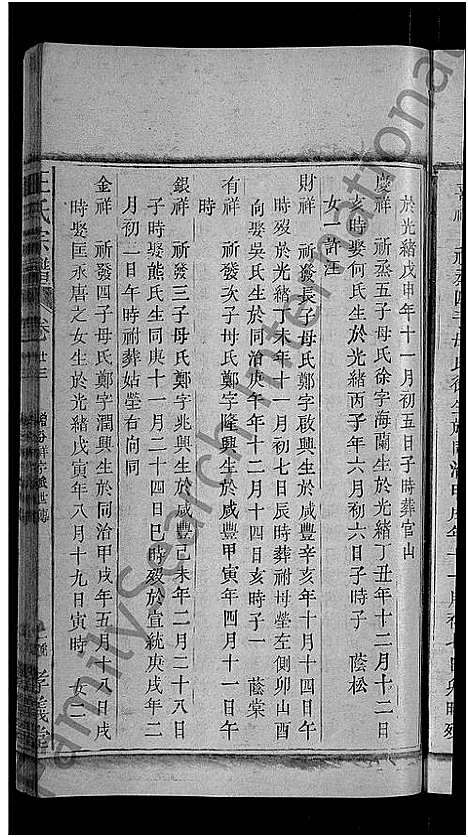 於光緒戊申年十一月初五日子時葬官山
慶祥 祈烝五子母氏徐字海蘭生於光緒丁丑年十二月十二日
亥時娶何氏生於光緒丙子年六月初六日子時子 蔭松
女一許汪
財祥 祈發長子母氏鄭字啟興生於咸豐辛亥年十月十四日午
時歿於光緒丁未年十一月初七日辰時葬祔母塋左側卯山酉
向娶吳氏生於同治庚午年十二月十四日亥時子一 蔭棠
有祥 祈發次子母氏鄭字隆興生於咸豐甲寅年四月十一日午
時
銀祥 祈發三子母氏鄭字兆興生於咸豐己未年二月二十八日
子時娶熊氏生同庚十一月二十四日巳時歿於宣統庚戌年二
月初二日午時祔葬姑塋右向同
金祥 祈發四子母氏鄭字潤興生於同治甲戌年五月十八日戌
時娶匡永唐之女生於光緒戊寅年八月十九日寅時 女二
王氏宗譜
卷廿三
孝義堂
FamilySearch International